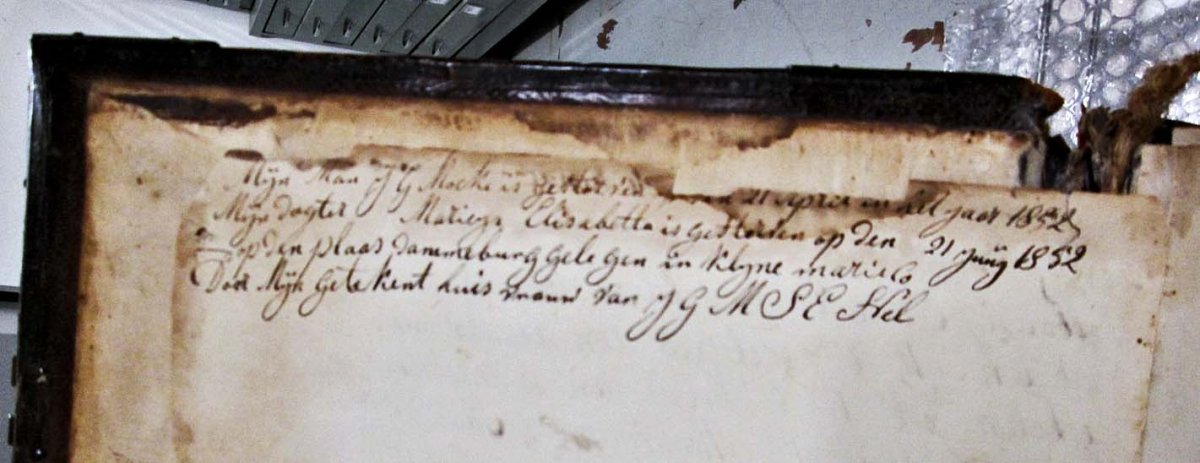 Mÿn Man J G Mocke is gestorven den 21 april in het jaar 1852
Mÿn dogter Mariega Elisabetta is gestorven op den 21 Junÿ 1852
op den plaas dammeburg gelegen in Klyne
Door Mÿn getekent huis vrouw van J G M S E Nel